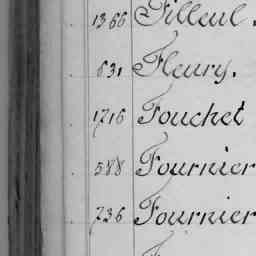 1366 Filleul.
631 Fleury.
1716 Fouchet
588 Fournier
736 Fournier